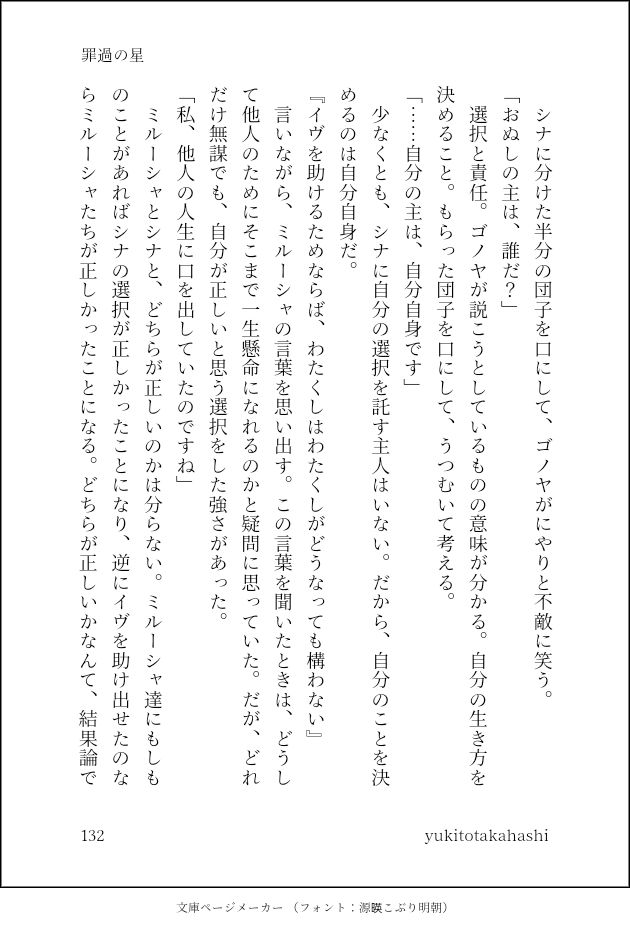 罪過の星
　シナに分けた半分の団子を口にして、ゴノヤがにやりと不敵に笑う。
「おぬしの主は、誰だ？」
　選択と責任。ゴノヤが説こうとしているものの意味が分かる。自分の生き方を
決めること。もらった団子を口にして、うつむいて考える。
「……自分の主は、自分自身です」
　少なくとも、シナに自分の選択を託す主人はいない。だから、自分のことを決
めるのは自分自身だ。
『イヴを助けるためならば、わたくしはわたくしがどうなっても構わない』
　言いながら、ミルーシャの言葉を思い出す。この言葉を聞いたときは、どうし
て他人のためにそこまで一生懸命になれるのかと疑問に思っていた。だが、どれ
だけ無謀でも、自分が正しいと思う選択をした強さがあった。
「私、他人の人生に口を出していたのですね」
　ミルーシャとシナと、どちらが正しいのかは分らない。ミルーシャ達にもしも
のことがあればシナの選択が正しかったことになり、逆にイヴを助け出せたのな
らミルーシャたちが正しかったことになる。どちらが正しいかなんて、結果論で
132
yukitotakahashi
文庫ページメーカー （フォント：源暎こぶり明朝）